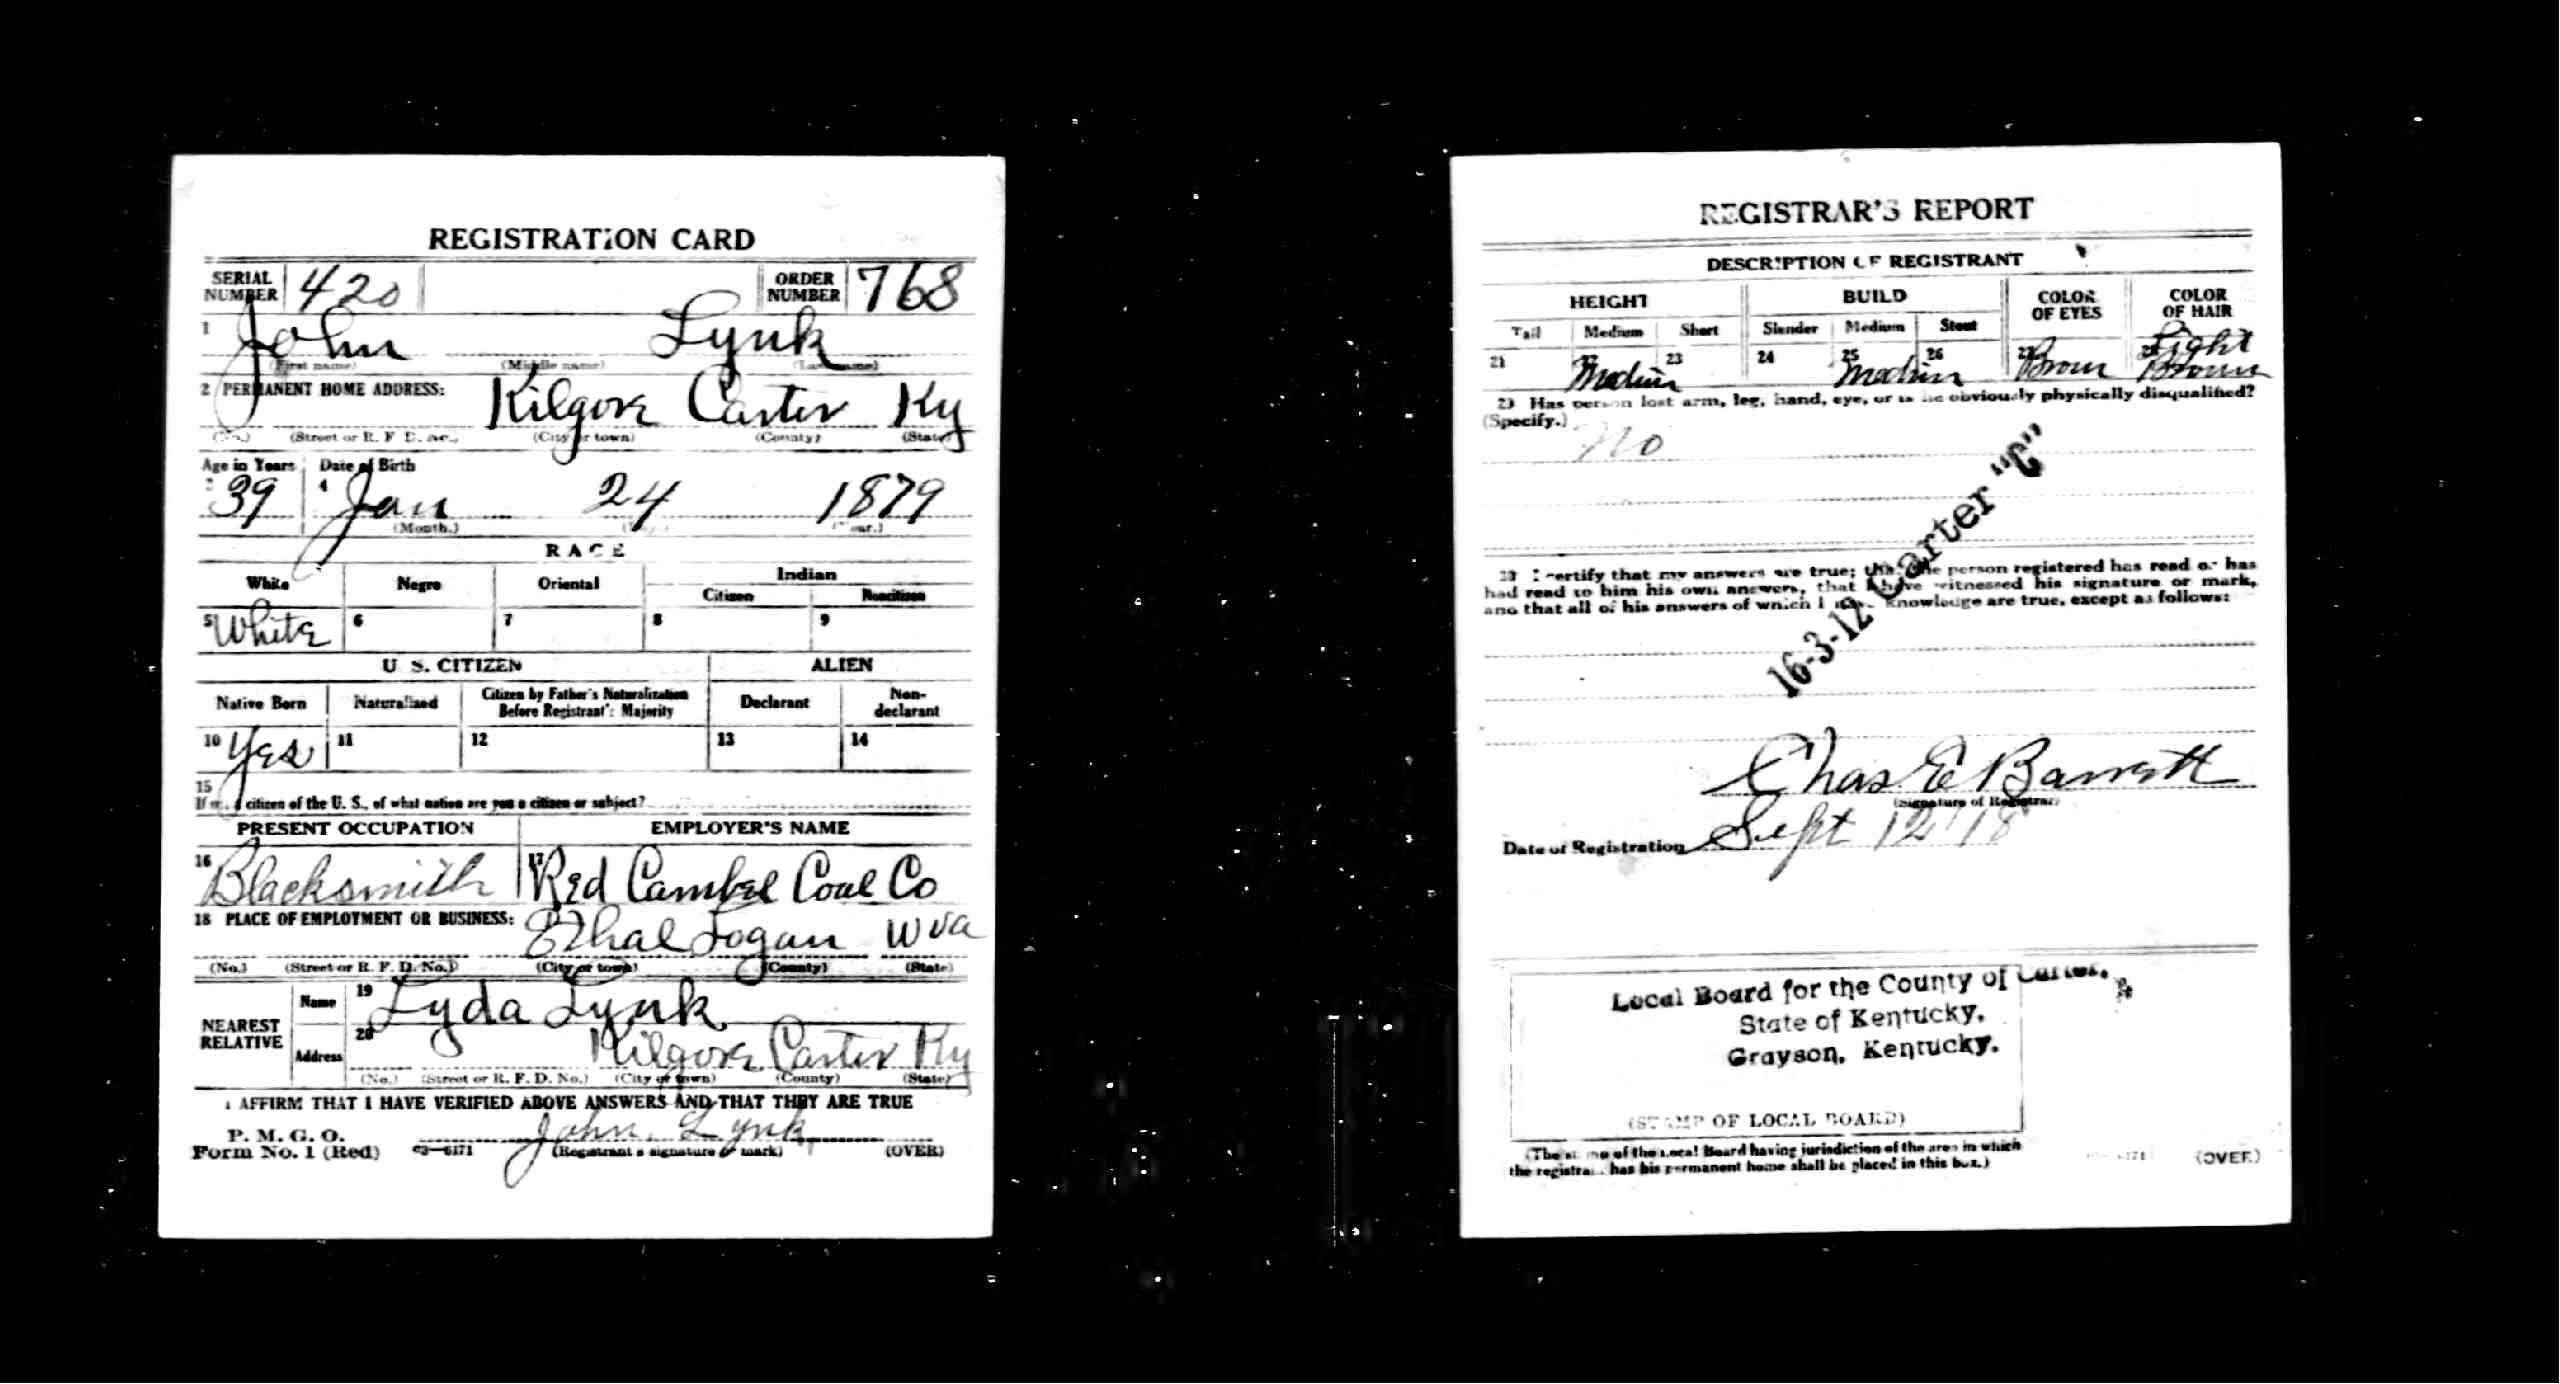 REGISTRATION CARD
SERIAL NUMBER 420 ORDER NUMBER 768
1 John Lynk
(First name) (Middle name) (Last name)
2 PERMANENT HOME ADDRESS: Kilgore Carter Ky
(No.) (Street or R. F. D. No.) (City or town) (County) (State)
Age in Years Date of Birth
3 39 4 Jan 24 1879
(Month.) (Day.) (Year.)
RACE
White Negro Oriental Indian
Citizen Noncitizen
5 White 6 7 8 9
U. S. CITIZEN ALIEN
Native Born Naturalized Citizen by Father's Naturalization Before Registrant's Majority Declarant Non-declarant
10 Yes 11 12 13 14
15
If not a citizen of the U. S., of what nation are you a citizen or subject?
PRESENT OCCUPATION EMPLOYER'S NAME
16 Blacksmith 17 Red Cambel Coal Co
18 PLACE OF EMPLOYMENT OR BUSINESS: Ethal Logan W Va
(No.) (Street or R. F. D. No.) (City or town) (County) (State)
NEAREST RELATIVE Name 19 Lyda Lynk
Address 20 Kilgore Carter Ky
(No.) (Street or R. F. D. No.) (City or town) (County) (State)
I AFFIRM THAT I HAVE VERIFIED ABOVE ANSWERS AND THAT THEY ARE TRUE
P. M. G. O.
Form No. 1 (Red) 03—6171 John Lynk
(Registrant's signature or mark) (OVER)
REGISTRAR'S REPORT
DESCRIPTION OF REGISTRANT
HEIGHT BUILD COLOR OF EYES COLOR OF HAIR
Tall Medium Short Slender Medium Stout
21 22 Medium 23 24 25 Medium 26 27 Brown 28 Light Brown
29 Has person lost arm, leg, hand, eye, or is he obviously physically disqualified?
(Specify.) No
16-3-12 Carter "C"
30 I certify that my answers are true; that the person registered has read or has
had read to him his own answers, that I have witnessed his signature or mark,
and that all of his answers of which I have knowledge are true, except as follows:
Chas E Barrett
(Signature of Registrar)
Date of Registration Sept 12 '18
Local Board for the County of Carter,
State of Kentucky,
Grayson, Kentucky.
(STAMP OF LOCAL BOARD)
(The stamp of the Local Board having jurisdiction of the area in which
the registrant has his permanent home shall be placed in this box.)
(OVER)